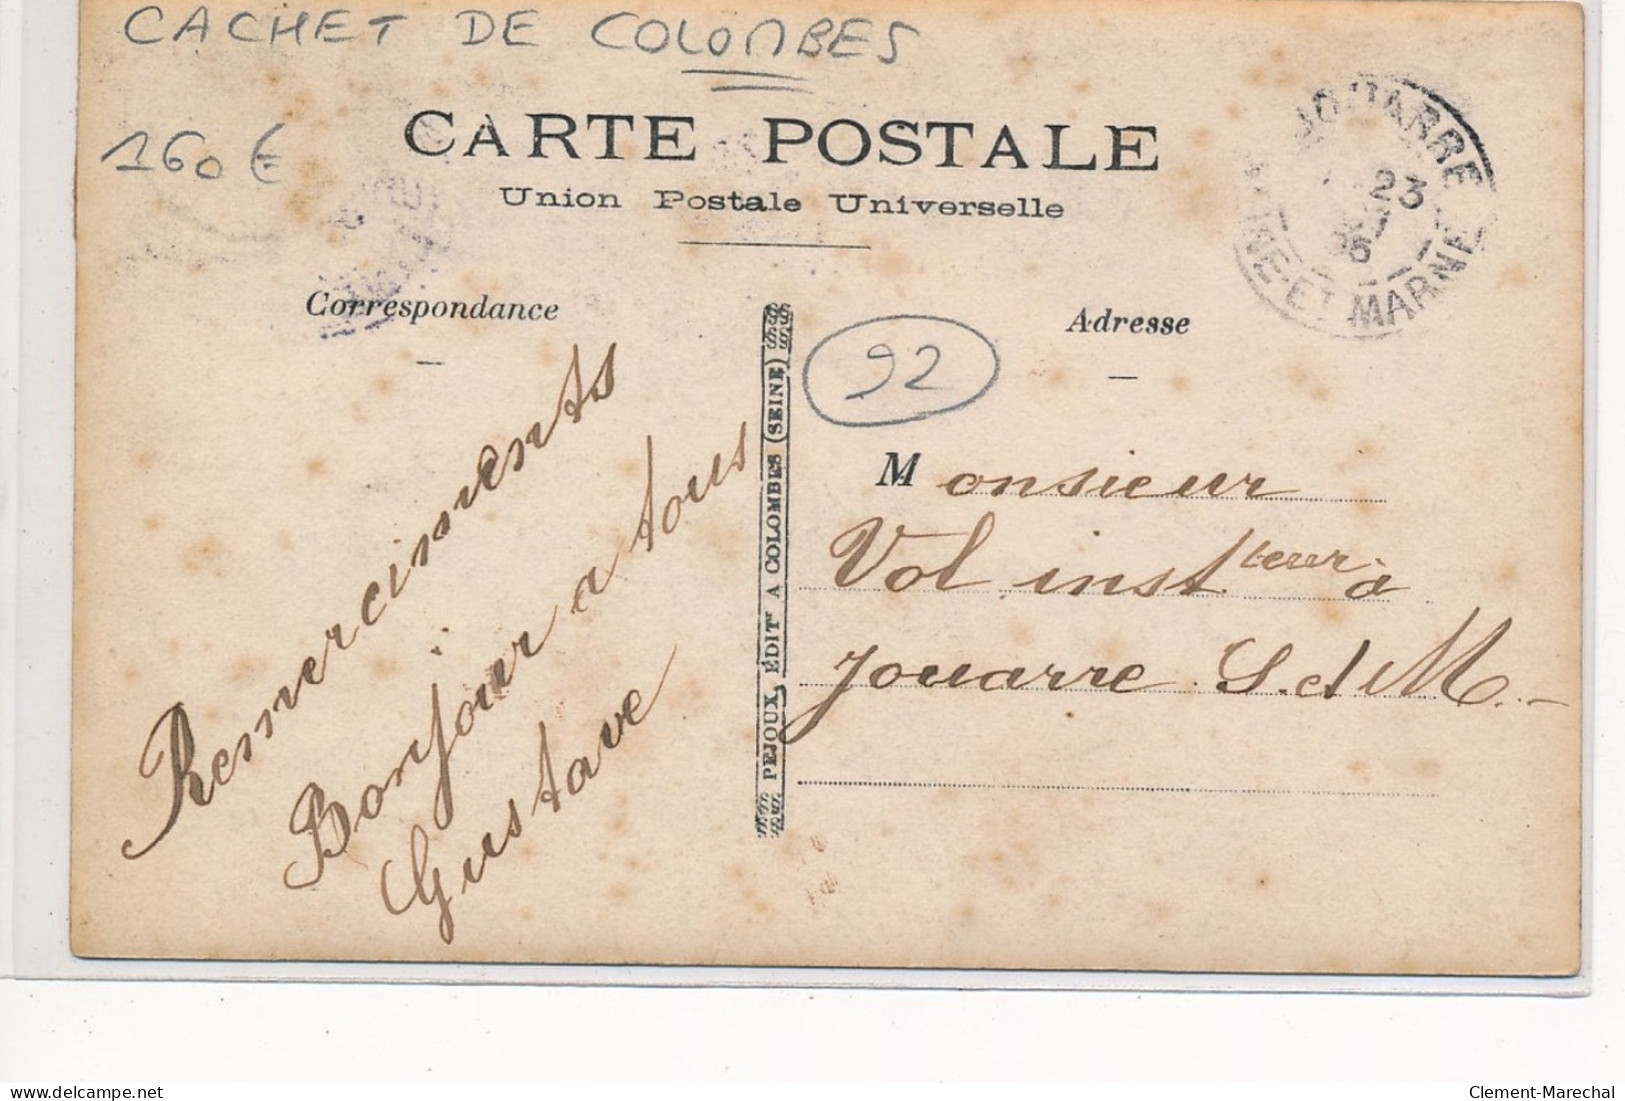 CACHET DE COLOMBES
160 €
CARTE POSTALE
Union Postale Universelle
JOUARRE
23
SEINE-ET-MARNE
Correspondance
Adresse
92
Remerciments
Bonjour a tous
Gustave
PEJOUX, ÉDITr A COLOMBES (SEINE)
Monsieur
Vol instteur à
Jouarre S. d M.
delcampe.net
Clement-Marechal